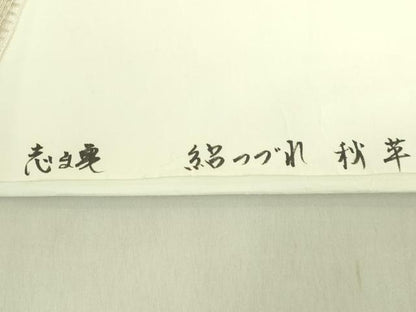 志ま亀 絽つづれ 秋草